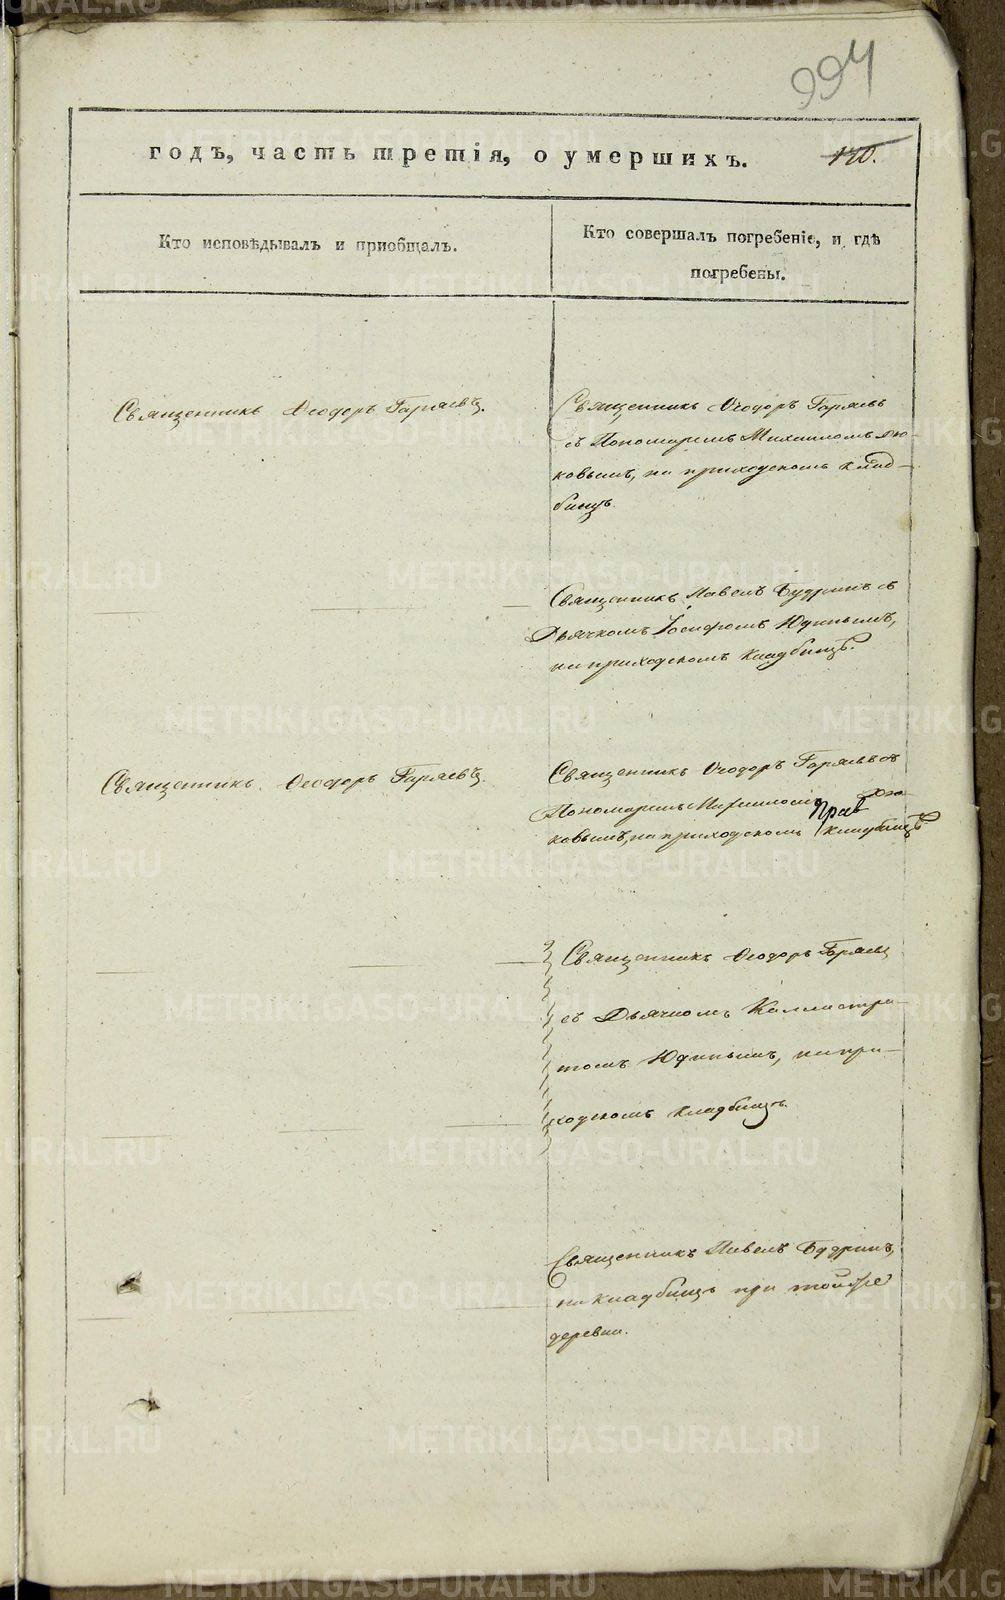 994
годъ, часть третія, о умершихъ.
140.
Кто исповѣдывалъ и пріобщалъ.
Кто совершалъ погребеніе, и гдѣ
погребены.
Священникъ Ѳеодоръ Гаряевъ.
Священникъ Ѳеодоръ Гаряевъ
съ Пономаремъ Михаиломъ
ковымъ, на приходскомъ клад-
бищѣ.
Священникъ Павелъ Будринъ съ
Дьячкомъ Іосифомъ Юдинымъ,
на приходскомъ кладбищѣ.
Священникъ Ѳеодоръ Гаряевъ.
Священникъ Ѳеодоръ Гаряевъ съ
Пономаремъ Михаиломъ
ковымъ, на приходскомъ кладбищѣ.
Священникъ Ѳеодоръ Гаряевъ
съ Дьячкомъ Каллистра-
томъ Юдинымъ, на при-
ходскомъ кладбищѣ.
Священникъ Павелъ Будринъ,
на кладбищѣ при той же
деревни.
METRIKI.GASO-URAL.RU